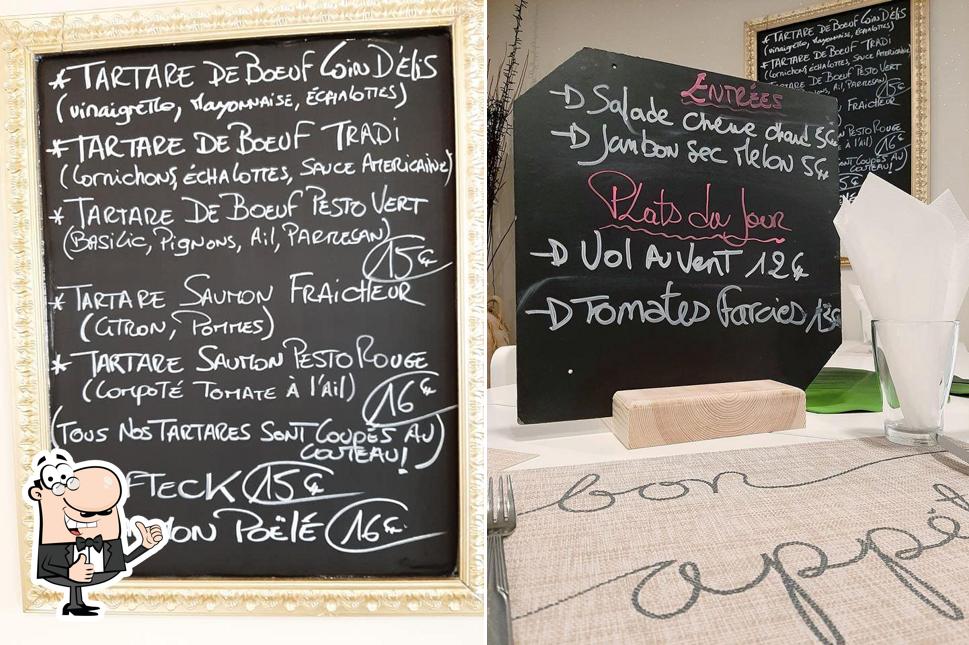 * TARTARE DE BOEUF COIN D'ÉLIS
(VINAIGRETTE, MAYONNAISE, ÉCHALOTTES)
* TARTARE DE BOEUF TRADI
(CORNICHONS, ÉCHALOTTES, SAUCE AMERICAINE)
* TARTARE DE BOEUF PESTO VERT
(BASILIC, PIGNONS, AIL, PARMESAN)
15€
* TARTARE SAUMON FRAICHEUR
(CITRON, POMMES)
* TARTARE SAUMON PESTO ROUGE
(COMPOTÉ TOMATE À l'AIL)
16€
(TOUS NOS TARTARES SONT COUPÉS AU
COUTEAU!)
FTECK 15€
POËLÉ 16€
ENTRÉES
Salade chèvre chaud 5€
Jambon Sec Melon 5€
Plats du Jour
Vol Au Vent 12€
Tomates Farcies 13€
* TARTARE DE BOEUF COIN D'ÉLIS
(VINAIGRETTE, MAYONNAISE, ÉCHALOTTES)
* TARTARE DE BOEUF TRADI
(CORNICHONS, ÉCHALOTTES, SAUCE AMERICAINE
DE BOEUF PESTO VERT
AIL, PARMESAN)
15€
FRAICHEUR
PESTO ROUGE
À l'AIL)
16€
SONT COUPÉS AU
COUTEAU!
bon
appé